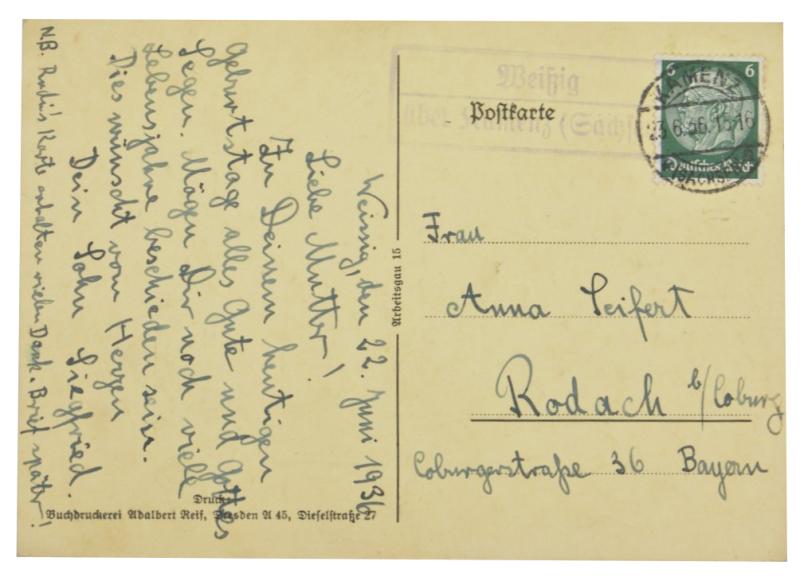 Weissig, den 22. Juni 1936
Liebe Mutter!
Zu Deinem heutigen
Geburtstage alles Gute und Gottes
Segen. Mögen Dir noch viele
Lebensjahre beschieden sein.
Dies wünscht vom Herzen
Dein Sohn Siegfried.
N.B. Rudi's Karte erhalten vielen Dank. Brief später!
Druck:
Buchdruckerei Adalbert Reif, Dresden A 45, Dieselstraße 27
Arbeitsgau 15
Weißig
über Kamenz (Sachs
Postkarte
6 6
Deutsches Reich
KAMENZ
23.6.36.15-16
(SACHS)
Frau
Anna Seifert
Rodach b/Coburg
Coburgerstraße 36 Bayern